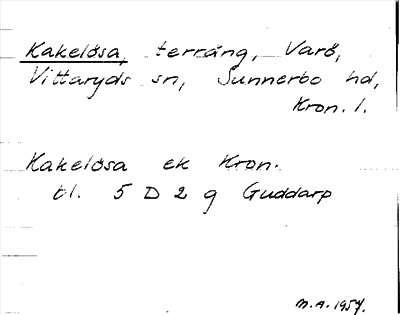 Kakelösa, terräng, Varö,
Vittaryds sn, Sunnerbo hd,
Kron. l.
Kakelösa ek Kron.
bl. 5 D 2 g Guddarp
M.A. 1957.